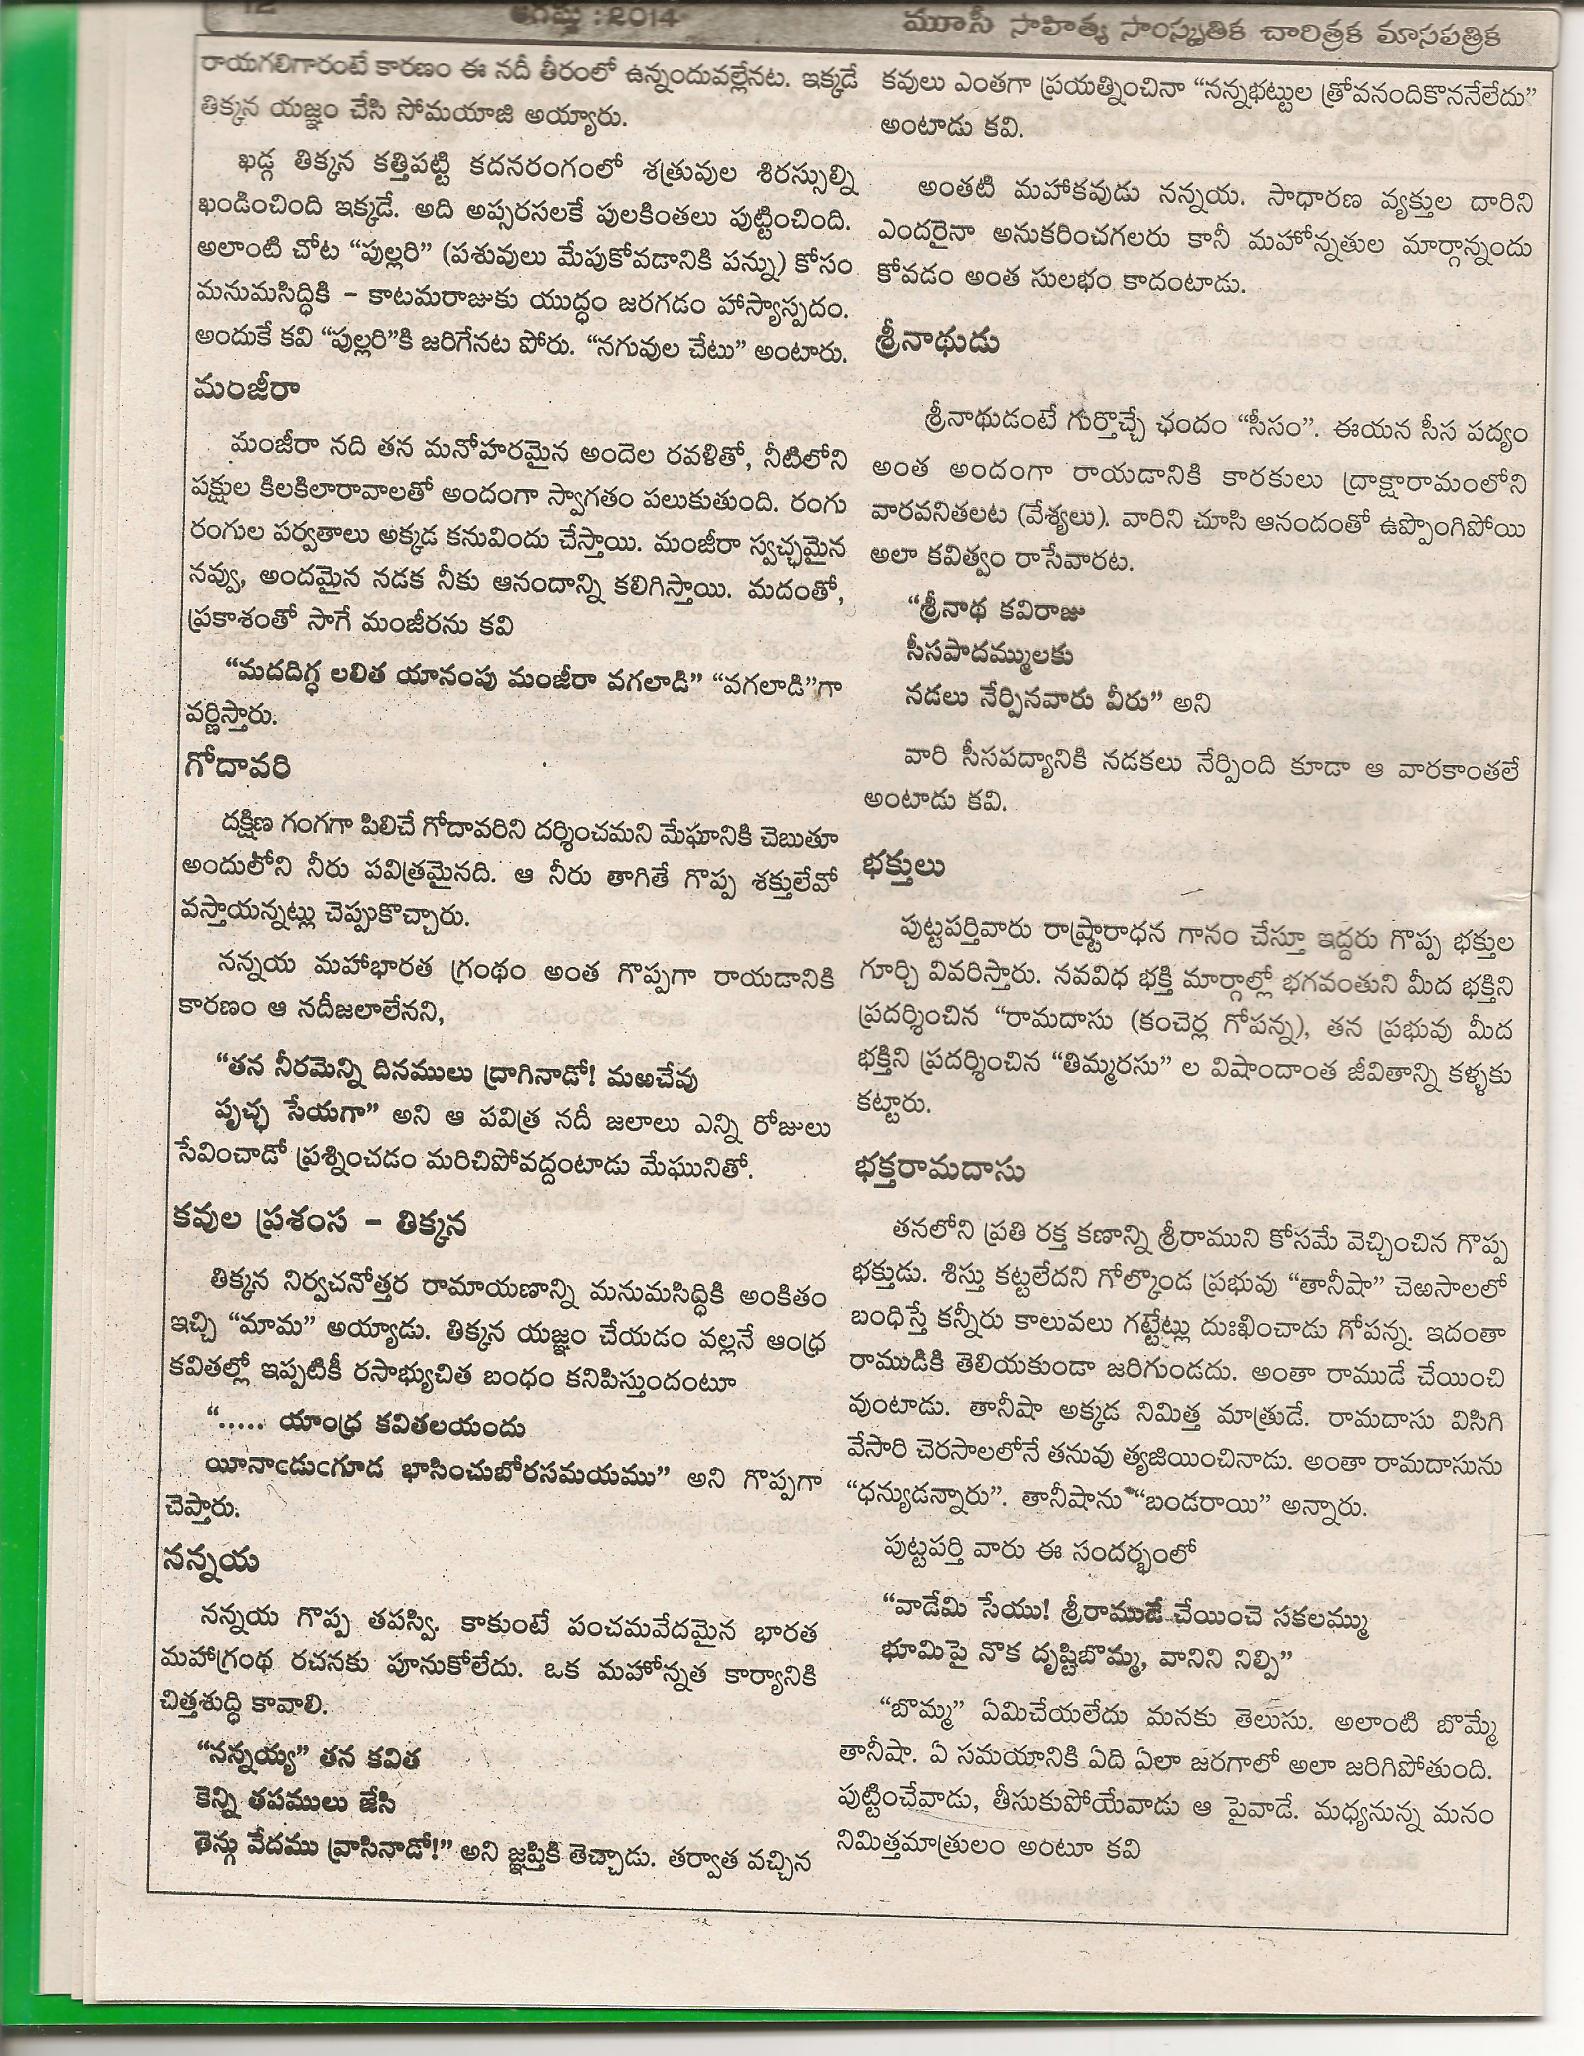 12
ఆగష్టు : 2014
మూసీ సాహిత్య సాంస్కృతిక చారిత్రక మాసపత్రిక
రాయగలిగారంటే కారణం ఈ నదీ తీరంలో ఉన్నందువల్లేనట. ఇక్కడే
తిక్కన యజ్ఞం చేసి సోమయాజి అయ్యారు.
ఖడ్గ తిక్కన కత్తిపట్టి కదనరంగంలో శత్రువుల శిరస్సుల్ని
ఖండించింది ఇక్కడే. అది అప్సరసలకే పులకింతలు పుట్టించింది.
అలాంటి చోట “పుల్లరి” (పశువులు మేపుకోవడానికి పన్ను) కోసం
మనుమసిద్ధికి – కాటమరాజుకు యుద్ధం జరగడం హాస్యాస్పదం.
అందుకే కవి “పుల్లరి”కి జరిగేనట పోరు. “నగువుల చేటు” అంటారు.
మంజీరా
మంజీరా నది తన మనోహరమైన అందెల రవళితో, నీటిలోని
పక్షుల కిలకిలారావాలతో అందంగా స్వాగతం పలుకుతుంది. రంగు
రంగుల పర్వతాలు అక్కడ కనువిందు చేస్తాయి. మంజీరా స్వచ్ఛమైన
నవ్వు, అందమైన నడక నీకు ఆనందాన్ని కలిగిస్తాయి. మదంతో,
ప్రకాశంతో సాగే మంజీరను కవి
“మదదిగ్ధ లలిత యానంపు మంజీరా వగలాడి” “వగలాడి”గా
వర్ణిస్తారు.
గోదావరి
దక్షిణ గంగగా పిలిచే గోదావరిని దర్శించమని మేఘానికి చెబుతూ
అందులోని నీరు పవిత్రమైనది. ఆ నీరు తాగితే గొప్ప శక్తులేవో
వస్తాయన్నట్లు చెప్పుకొచ్చారు.
నన్నయ మహాభారత గ్రంథం అంత గొప్పగా రాయడానికి
కారణం ఆ నదీజలాలేనని,
“తన నీరమెన్ని దినములు ద్రాగినాడో! మఱచేవు
పృచ్ఛ సేయగా” అని ఆ పవిత్ర నదీ జలాలు ఎన్ని రోజులు
సేవించాడో ప్రశ్నించడం మరిచిపోవద్దంటాడు మేఘునితో.
కవుల ప్రశంస – తిక్కన
తిక్కన నిర్వచనోత్తర రామాయణాన్ని మనుమసిద్ధికి అంకితం
ఇచ్చి “మామ” అయ్యాడు. తిక్కన యజ్ఞం చేయడం వల్లనే ఆంధ్ర
కవితల్లో ఇప్పటికీ రసాభ్యుచిత బంధం కనిపిస్తుందంటూ
“..... యాంధ్ర కవితలయందు
యీనాఁడుఁగూడ భాసించుబోరసమయము” అని గొప్పగా
చెప్తారు.
నన్నయ
నన్నయ గొప్ప తపస్వి. కాకుంటే పంచమవేదమైన భారత
మహాగ్రంథ రచనకు పూనుకోలేదు. ఒక మహోన్నత కార్యానికి
చిత్తశుద్ధి కావాలి.
“నన్నయ్య” తన కవిత
కెన్ని తపములు జేసి
తెన్గు వేదము వ్రాసినాడో!” అని జ్ఞప్తికి తెచ్చాడు. తర్వాత వచ్చిన
కవులు ఎంతగా ప్రయత్నించినా “నన్నభట్టుల త్రోవనందికొననేలేదు”
అంటాడు కవి.
అంతటి మహాకవుడు నన్నయ. సాధారణ వ్యక్తుల దారిని
ఎందరైనా అనుకరించగలరు కానీ మహోన్నతుల మార్గాన్నందు
కోవడం అంత సులభం కాదంటాడు.
శ్రీనాథుడు
శ్రీనాథుడంటే గుర్తొచ్చే ఛందం “సీసం”. ఈయన సీస పద్యం
అంత అందంగా రాయడానికి కారకులు ద్రాక్షారామంలోని
వారవనితలట (వేశ్యలు). వారిని చూసి ఆనందంతో ఉప్పొంగిపోయి
అలా కవిత్వం రాసేవారట.
“శ్రీనాథ కవిరాజు
సీసపాదమ్ములకు
నడలు నేర్పినవారు వీరు” అని
వారి సీసపద్యానికి నడకలు నేర్పింది కూడా ఆ వారకాంతలే
అంటాడు కవి.
భక్తులు
పుట్టపర్తివారు రాష్ట్రారాధన గానం చేస్తూ ఇద్దరు గొప్ప భక్తుల
గూర్చి వివరిస్తారు. నవవిధ భక్తి మార్గాల్లో భగవంతుని మీద భక్తిని
ప్రదర్శించిన “రామదాసు (కంచెర్ల గోపన్న), తన ప్రభువు మీద
భక్తిని ప్రదర్శించిన “తిమ్మరసు” ల విషాందాంత జీవితాన్ని కళ్ళకు
కట్టారు.
భక్తరామదాసు
తనలోని ప్రతి రక్త కణాన్ని శ్రీరాముని కోసమే వెచ్చించిన గొప్ప
భక్తుడు. శిస్తు కట్టలేదని గోల్కొండ ప్రభువు “తానీషా” చెఱసాలలో
బంధిస్తే కన్నీరు కాలువలు గట్టేట్లు దుఃఖించాడు గోపన్న. ఇదంతా
రాముడికి తెలియకుండా జరిగుండదు. అంతా రాముడే చేయించి
వుంటాడు. తానీషా అక్కడ నిమిత్త మాత్రుడే. రామదాసు విసిగి
వేసారి చెరసాలలోనే తనువు త్యజియించినాడు. అంతా రామదాసును
“ధన్యుడన్నారు”. తానీషాను “బండరాయి” అన్నారు.
పుట్టపర్తి వారు ఈ సందర్భంలో
“వాడేమి సేయు! శ్రీరాముడే చేయించె సకలమ్ము
భూమిపై నొక దృష్టిబొమ్మ, వానిని నిల్పి”
“బొమ్మ” ఏమిచేయలేదు మనకు తెలుసు. అలాంటి బొమ్మే
తానీషా. ఏ సమయానికి ఏది ఏలా జరగాలో అలా జరిగిపోతుంది.
పుట్టించేవాడు, తీసుకుపోయేవాడు ఆ పైవాడే. మధ్యనున్న మనం
నిమిత్తమాత్రులం అంటూ కవి